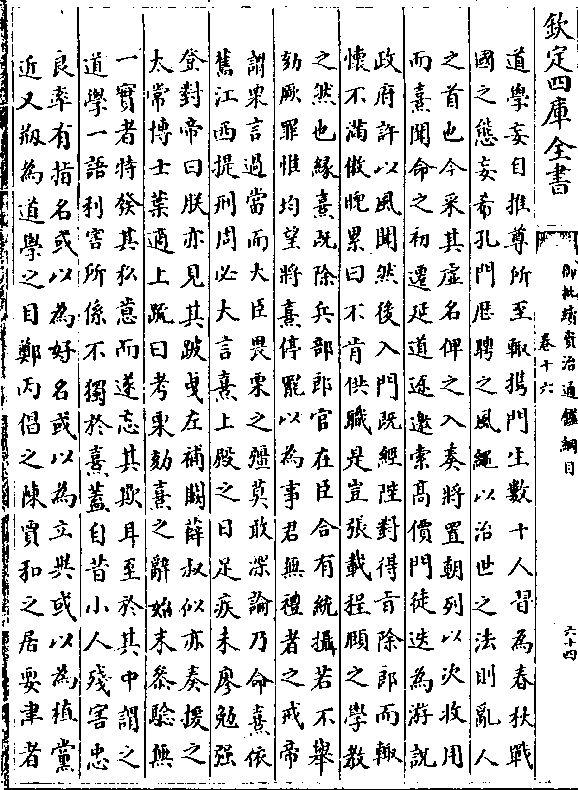 欽定四庫全書
御批續資治通鑑綱目
卷十六
六十四
道學妄自推尊所至輙攜門生數十人習為春秋戰
國之態妄希孔門歴聘之風繩以治世之法則亂人
之首也今采其虛名俾之入奏將置朝列以次收用
而熹聞命之初遷延道途邀索高價門徒迭為游説
政府許以風聞然後入門既經陛對得㫖除郎而輙
懷不滿傲睨累日不肯供職是豈張載程頤之學教
之然也縁熹既除兵部郎官在臣合有統攝若不舉
劾厥罪惟均望將熹停罷以為事君無禮者之戒帝
謂栗言過當而大臣畏栗之彊莫敢深論乃命熹依
舊江西提刑周必大言熹上殿之日足疾未廖勉强
登對帝曰朕亦見其跛曵左補闕薛叔似亦奏援之
太常博士葉適上疏曰考栗劾熹之辭始末叅驗無
一實者特發其私意而遂忘其欺耳至於其中謂之
道學一語利害所係不獨於熹蓋自昔小人殘害忠
良率有指名或以為好名或以為立異或以為植黨
近又剏為道學之目鄭丙倡之陳賈和之居要津者